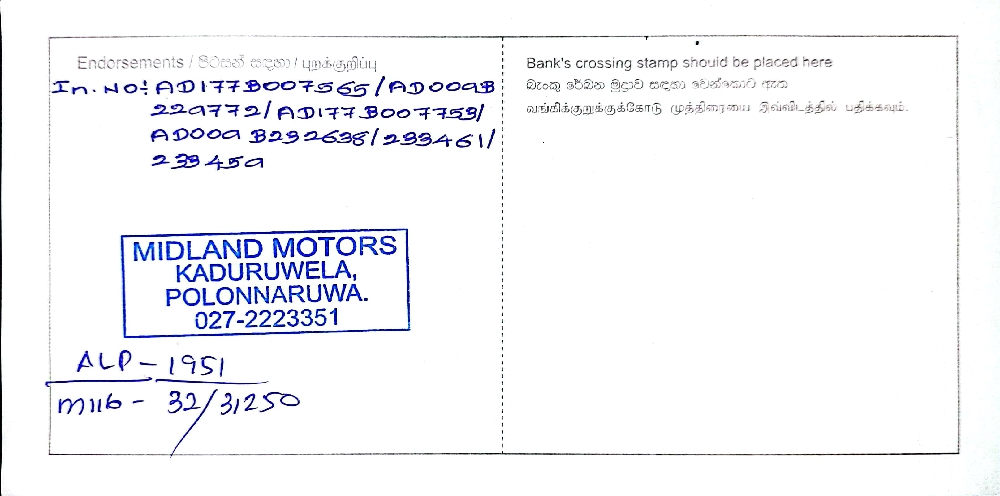 Endorsements / පිටසන් සඳහා / புறக்குறிப்பு
In. NO: AD177B007565/AD009B
229772/AD177B007753/
AD009B232638/233461/
233459
MIDLAND MOTORS
KADURUWELA,
POLONNARUWA.
027-2223351
ALP - 1951
M116 - 32/31250
Bank's crossing stamp should be placed here
බැංකු රේඛන මුද්‍රාව සඳහා වෙන්කොට ඇත
வங்கிக்குறுக்குக்கோடு முத்திரையை இவ்விடத்தில் பதிக்கவும்.